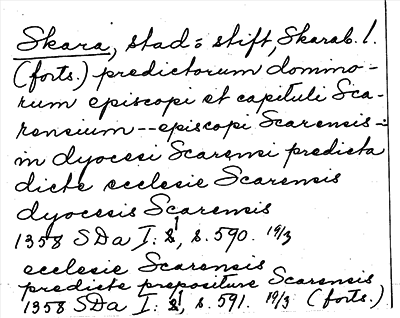 Skara, stad = stift, Skarab. l.
(forts.) predictorum domino-
rum episcopi et capituli Sca-
rensium -- episcopi Scarensis -
in dyocesi Scarensi predicta
dicte ecclesie Scarensis
dyocesis Scarensis
1358 SDa I: 1, s. 590. 19/3
ecclesie Scarensis
predicte prepositure Scarensis
1358 SDa I: 1, s. 591. 19/3 (forts.)